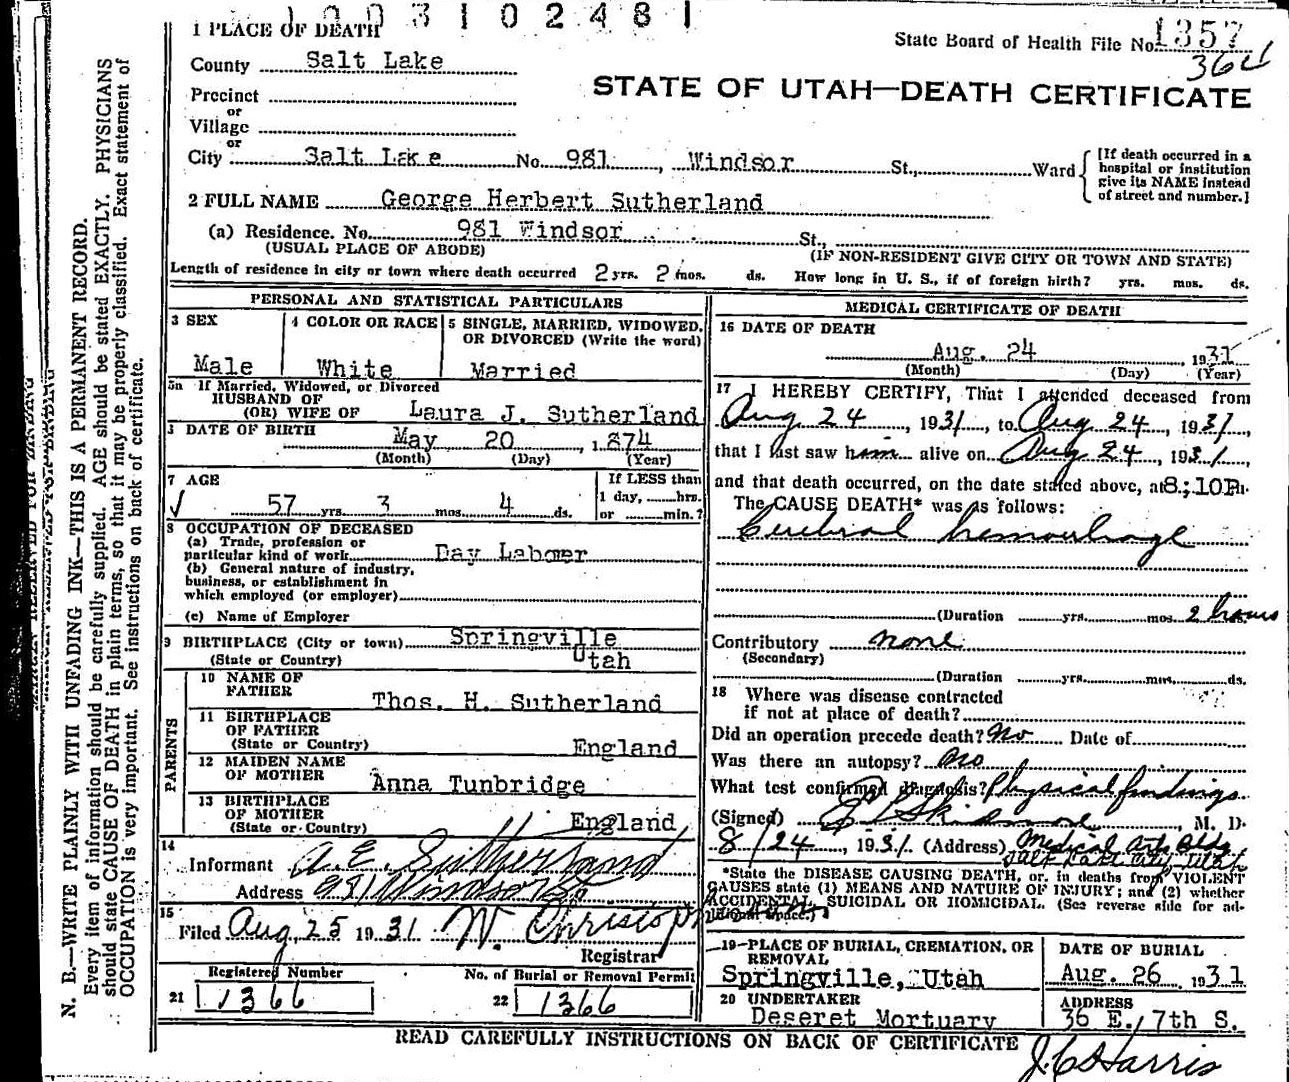 1003102481
1 PLACE OF DEATH
State Board of Health File No. 1357
364
County Salt Lake
STATE OF UTAH—DEATH CERTIFICATE
Precinct
or
Village
or
City Salt Lake No. 981, Windsor St., Ward
[If death occurred in a
hospital or institution
give its NAME instead
of street and number.]
2 FULL NAME George Herbert Sutherland
(a) Residence. No. 981 Windsor St.,
(USUAL PLACE OF ABODE) (IF NON-RESIDENT GIVE CITY OR TOWN AND STATE)
Length of residence in city or town where death occurred 2 yrs. 2 mos. ds. How long in U. S., if of foreign birth? yrs. mos. ds.
PERSONAL AND STATISTICAL PARTICULARS
3 SEX
Male
4 COLOR OR RACE
White
5 SINGLE, MARRIED, WIDOWED,
OR DIVORCED (Write the word)
Married
5a If Married, Widowed, or Divorced
HUSBAND OF
(OR) WIFE OF Laura J. Sutherland
DATE OF BIRTH May 20, 1874
(Month) (Day) (Year)
7 AGE
57 yrs. 3 mos. 4 ds.
If LESS than
1 day, hrs.
or min.?
8 OCCUPATION OF DECEASED
(a) Trade, profession or
particular kind of work Day Laborer
(b) General nature of industry,
business, or establishment in
which employed (or employer)
(c) Name of Employer
9 BIRTHPLACE (City or town) Springville
(State or Country) Utah
PARENTS
10 NAME OF
FATHER Thos. H. Sutherland
11 BIRTHPLACE
OF FATHER
(State or Country) England
12 MAIDEN NAME
OF MOTHER Anna Tunbridge
13 BIRTHPLACE
OF MOTHER
(State or Country) England
14
Informant A. E. Sutherland
Address 981 Windsor St
15
Filed Aug. 25 1931 W. Christopherson
Registrar
Registered Number
21 1366
No. of Burial or Removal Permit
22 1366
MEDICAL CERTIFICATE OF DEATH
16 DATE OF DEATH
Aug. 24 1931
(Month) (Day) (Year)
17 I HEREBY CERTIFY, That I attended deceased from
Aug 24, 1931, to Aug 24, 1931,
that I last saw him alive on Aug 24, 1931,
and that death occurred, on the date stated above, at 8:10P m.
The CAUSE DEATH* was as follows:
Cerebral hemorrhage
(Duration yrs. mos. 2 hours
Contributory none
(Secondary)
(Duration yrs. mos. ds.
18 Where was disease contracted
if not at place of death?
Did an operation precede death? No Date of
Was there an autopsy? No
What test confirmed diagnosis? Physical findings
(Signed) Skidmore M. D.
8/24, 1931 (Address) Medical Arts Bldg
Salt Lake City Utah
*State the DISEASE CAUSING DEATH, or, in deaths from VIOLENT
CAUSES state (1) MEANS AND NATURE OF INJURY; and (2) whether
ACCIDENTAL, SUICIDAL OR HOMICIDAL. (See reverse side for ad-
ditional space.)
19—PLACE OF BURIAL, CREMATION, OR
REMOVAL
Springville, Utah
DATE OF BURIAL
Aug. 26 1931
20 UNDERTAKER
Deseret Mortuary
ADDRESS
36 E. 7th S.
READ CAREFULLY INSTRUCTIONS ON BACK OF CERTIFICATE
J. C. Harris
N. B.—WRITE PLAINLY WITH UNFADING INK—THIS IS A PERMANENT RECORD.
Every item of information should be carefully supplied. AGE should be stated EXACTLY. PHYSICIANS
should state CAUSE OF DEATH in plain terms, so that it may be properly classified. Exact statement of
OCCUPATION is very important. See instructions on back of certificate.
MARGIN RESERVED FOR BINDING